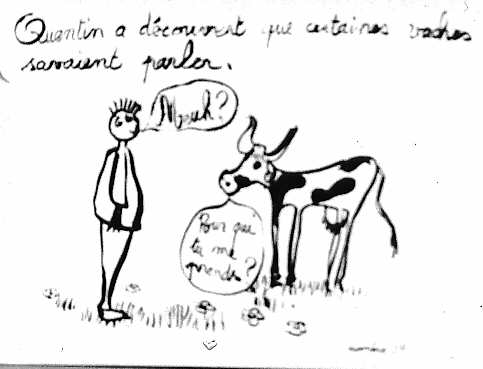 Quentin a découvert que certaines vaches
savaient parler.
Meuh?
Pour qui
tu me
prends?